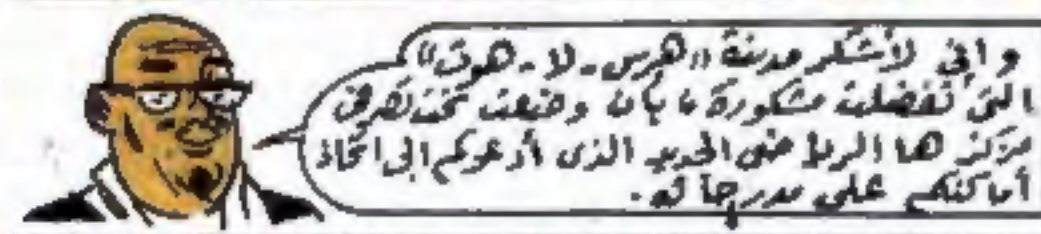 واني لأشكر مدينة «هرس - لا - هوت»
التي تفضلت مشكورة بأن وضعت تحت تصرفي
مركزها الرياضي الجديد الذي أدعوكم الى اتخاذ
أماكنكم على مدرجاته.